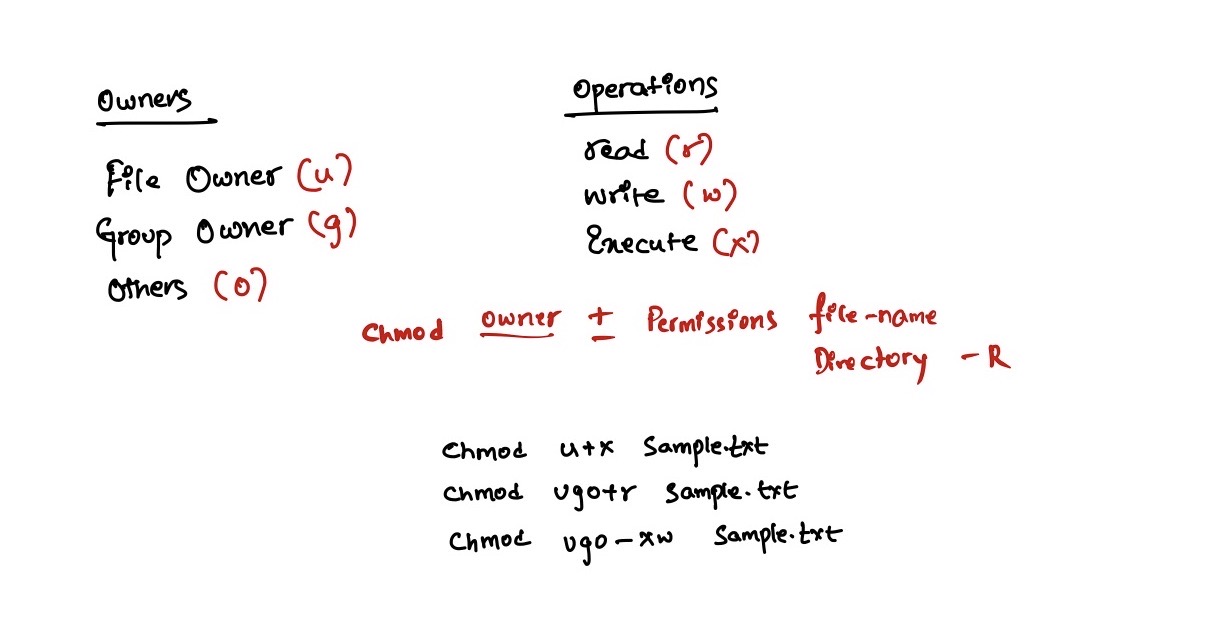 Owners
File Owner (u)
Group Owner (g)
Others (o)
Operations
read (r)
write (w)
Execute (x)
Chmod owner ± Permissions file-name
Directory -R
Chmod u+x Sample.txt
Chmod ugo+r Sample.txt
Chmod ugo-xw Sample.txt